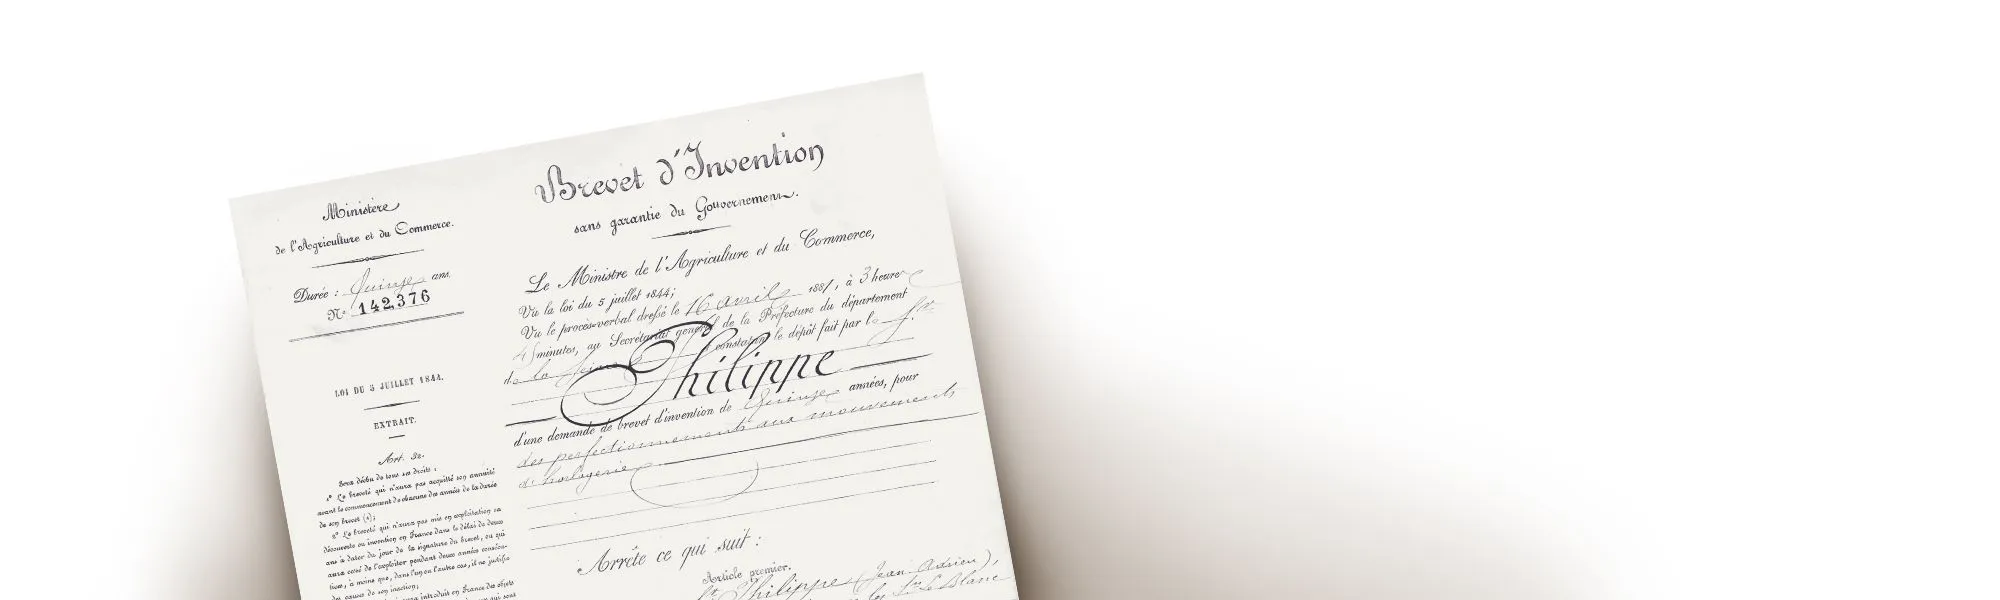 Ministère
de l'Agriculture et du Commerce.
Durée : Quinze ans.
N° 142,376
LOI DU 5 JUILLET 1844.
EXTRAIT.
Art. 32.
Sera déchu de tous ses droits :
1° Le breveté qui n'aura pas acquitté son annuité
avant le commencement de chacune des années de la durée
de son brevet (1);
2° Le breveté qui n'aura pas mis en exploitation sa
découverte ou invention en France dans le délai de deux
ans à dater du jour de la signature du brevet, ou qui
aura cessé de l'exploiter pendant deux années consécu-
tives, à moins que, dans l'un ou l'autre cas, il ne justifie
des causes de son inaction;
introduit en France des objets
qui sont
Brevet d'Invention
sans garantie du Gouvernement.
Le Ministre de l'Agriculture et du Commerce,
Vu la loi du 5 juillet 1844;
Vu le procès-verbal dressé le 16 avril 1881, à 3 heures
45 minutes, au Secrétariat général de la Préfecture du département
de la Seine et constatant le dépôt fait par le Sr
Philippe
d'une demande de brevet d'invention de Quinze années, pour
des perfectionnements aux mouvements
d'horlogerie
Arrête ce qui suit :
Article premier.
Philippe (Jean Adrien),
les Srs Le Blanc